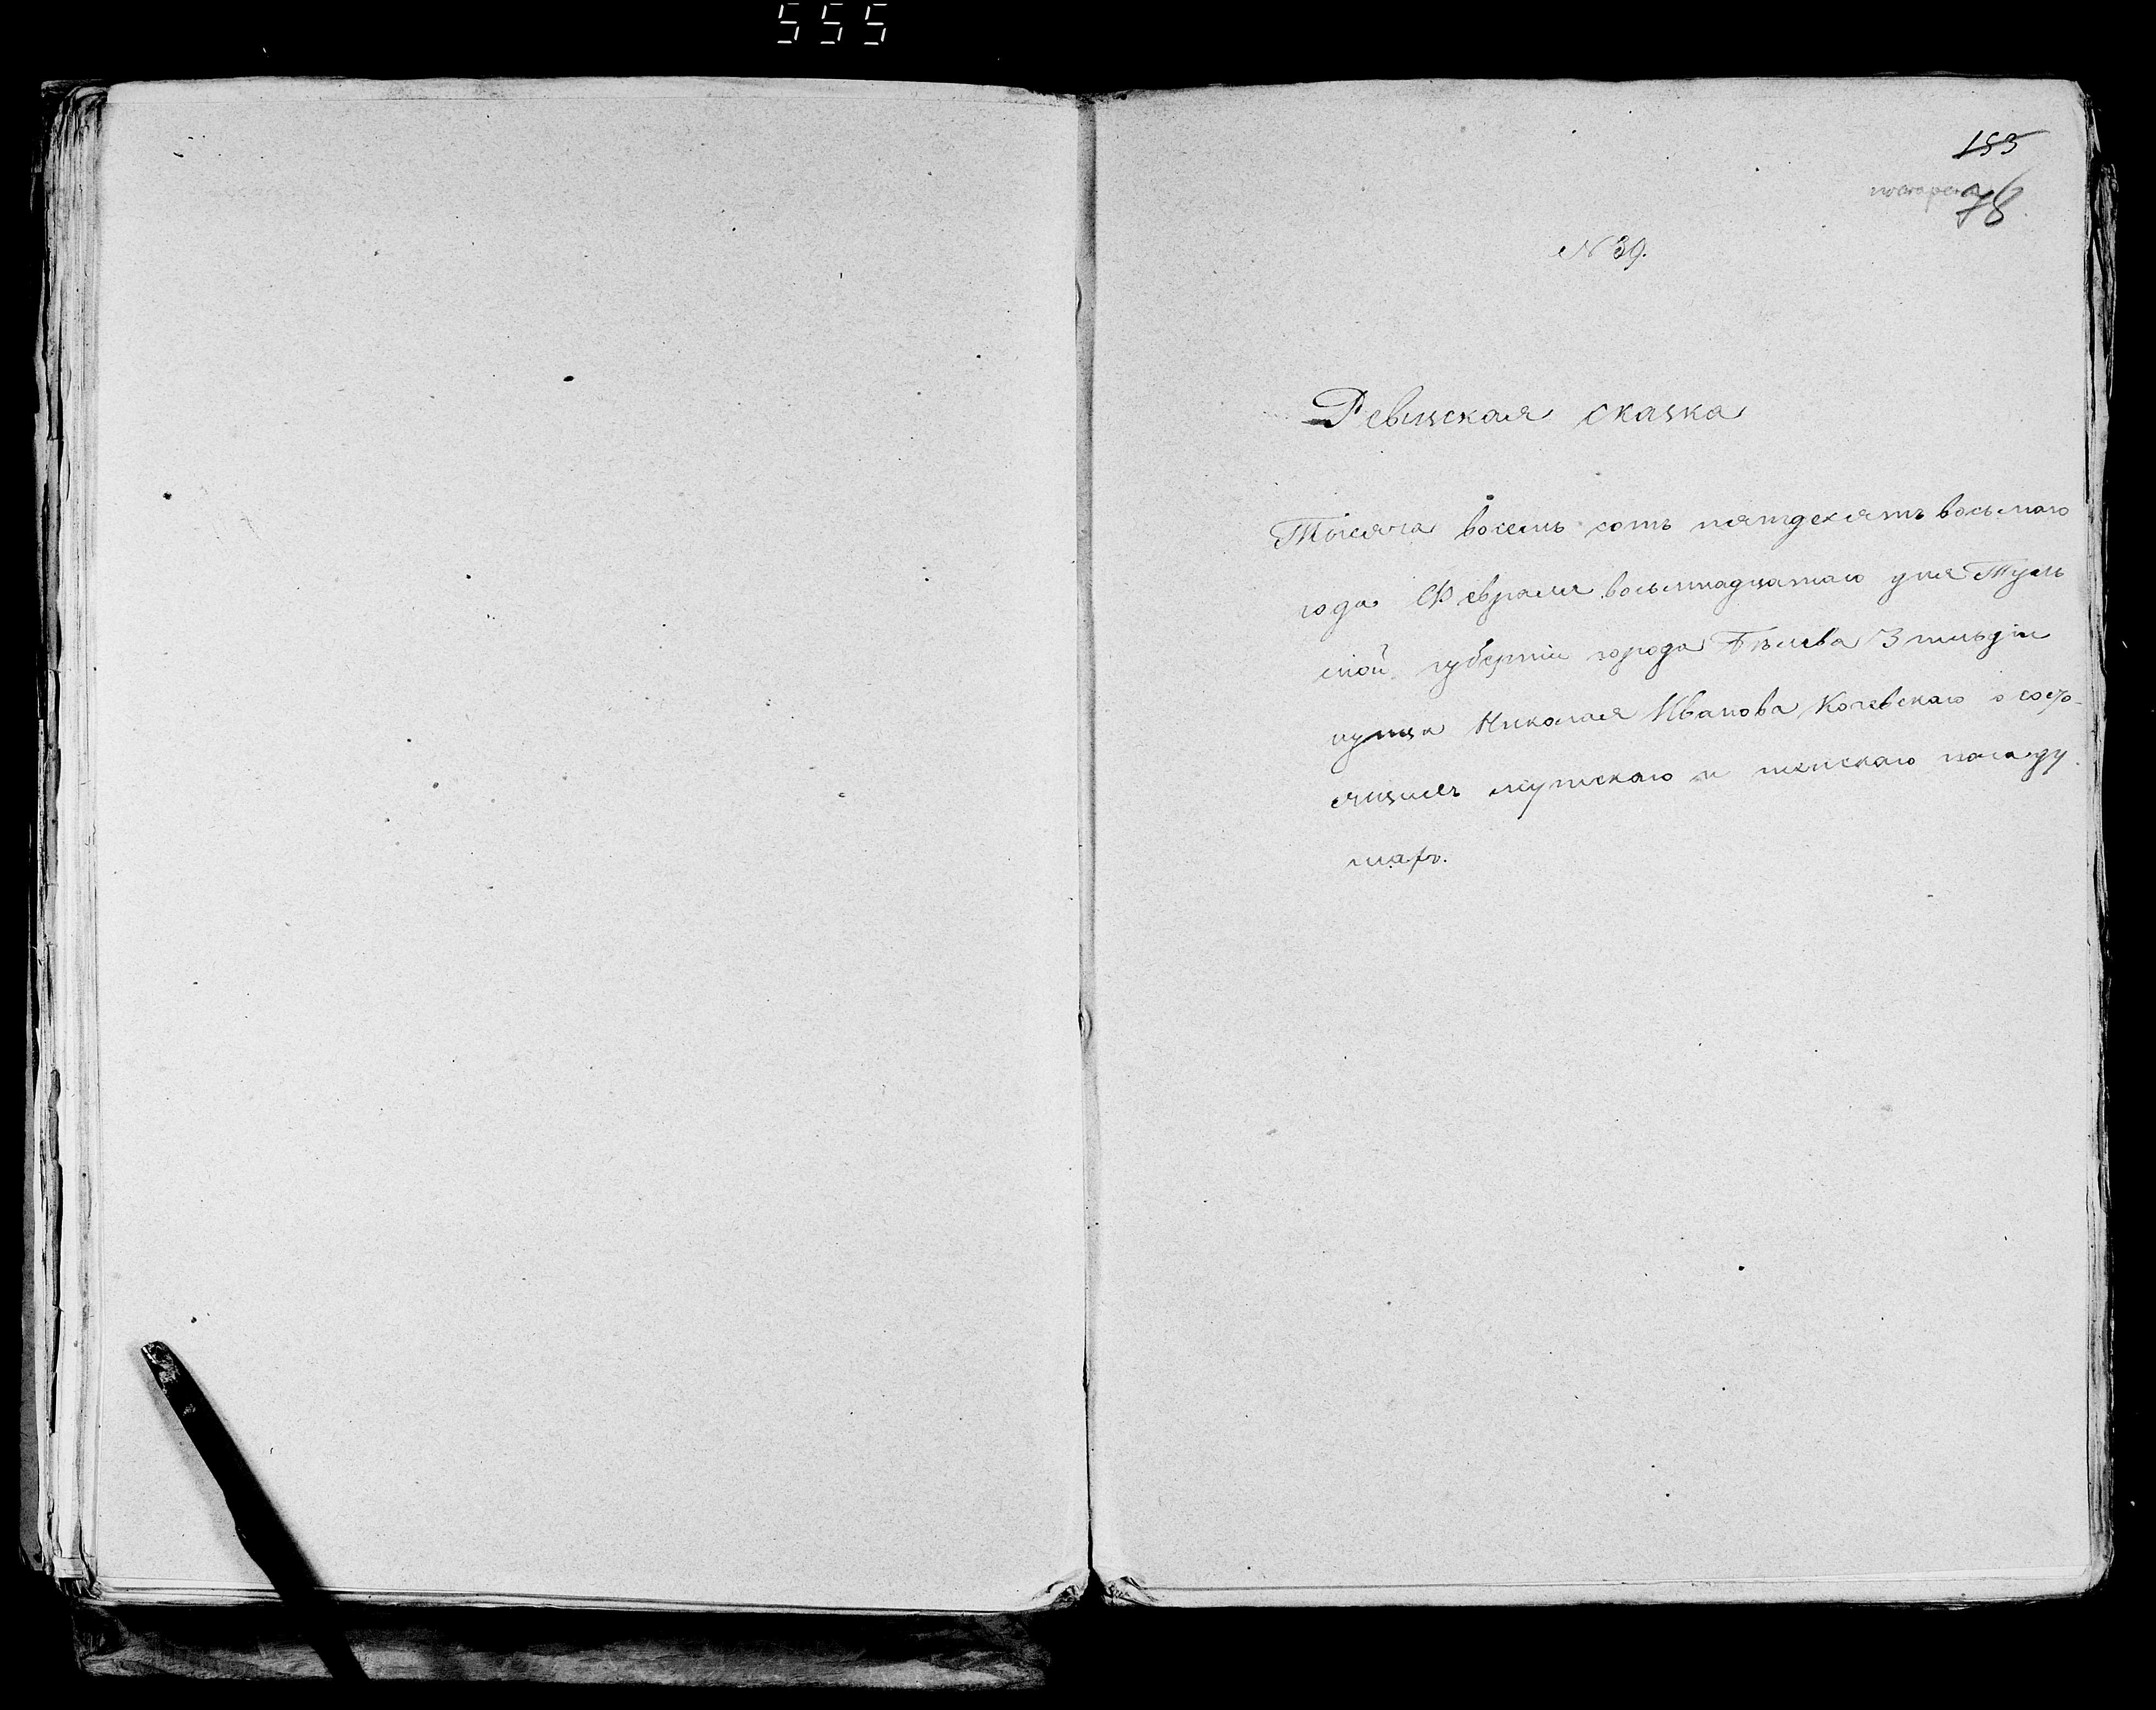 555
155
78
N 39.
Ревизская сказка
Тысяча восемь сотъ пятдесятъ восьмаго
года Февраля восьмнадцатаго дня Туль
ской губерніи города Бѣлева 3 гильдіи
купца Николая Иванова Кочевскаго о состо-
ящихъ мужскаго и женскаго пола ду
шахъ.